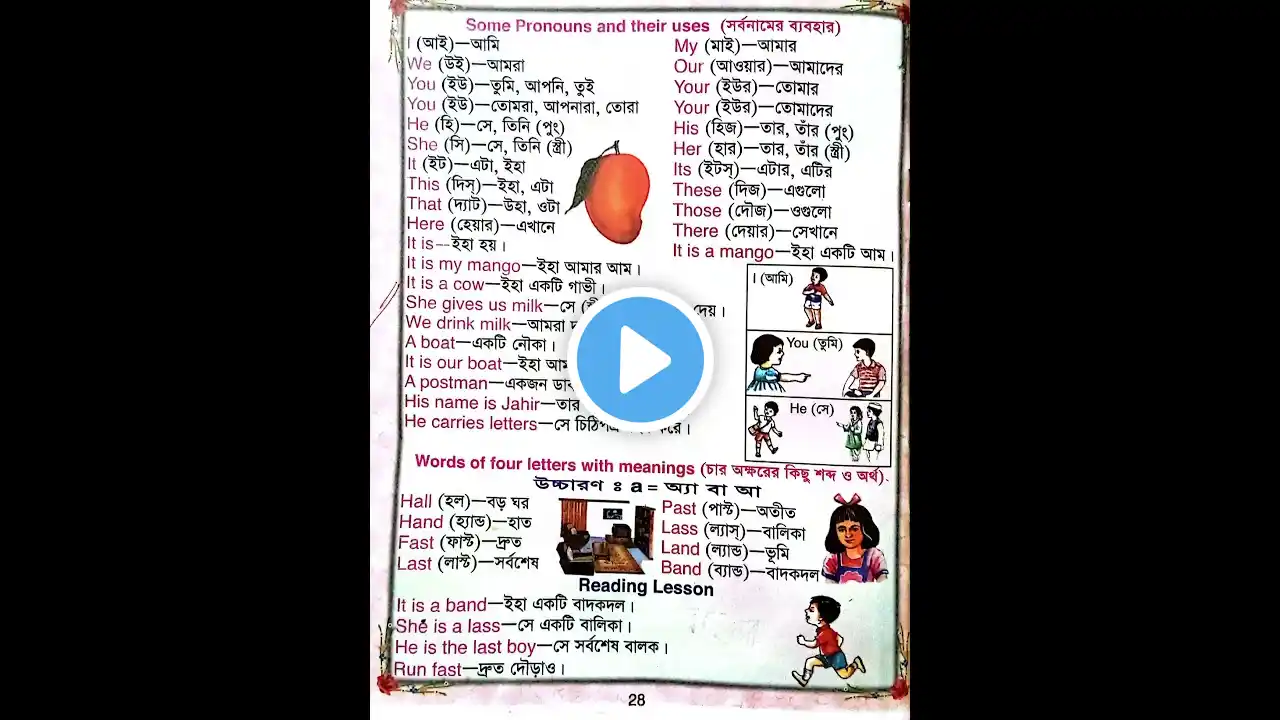 Some Pronouns and their uses (সর্বনামের ব্যবহার)
I (আই)—আমি
We (উই)—আমরা
You (ইউ)—তুমি, আপনি, তুই
You (ইউ)—তোমরা, আপনারা, তোরা
He (হি)—সে, তিনি (পুং)
She (সি)—সে, তিনি (স্ত্রী)
It (ইট)—এটা, ইহা
This (দিস্)—ইহা, এটা
That (দ্যাট)—উহা, ওটা
Here (হেয়ার)—এখানে
It is—ইহা হয়।
It is my mango—ইহা আমার আম।
It is a cow—ইহা একটি গাভী।
She gives us milk—সে দেয়।
We drink milk—আমরা
A boat—একটি নৌকা।
It is our boat—ইহা
A postman—একজন
His name is Jahir—তার
He carries letters—সে করে।
My (মাই)—আমার
Our (আওয়ার)—আমাদের
Your (ইউর)—তোমার
Your (ইউর)—তোমাদের
His (হিজ)—তার, তাঁর (পুং)
Her (হার)—তার, তাঁর (স্ত্রী)
Its (ইটস্)—এটার, এটির
These (দিজ)—এগুলো
Those (দৌজ)—ওগুলো
There (দেয়ার)—সেখানে
It is a mango—ইহা একটি আম।
I (আমি)
You (তুমি)
He (সে)
Words of four letters with meanings (চার অক্ষরের কিছু শব্দ ও অর্থ).
উচ্চারণ ঃ a = অ্যা বা আ
Hall (হল)—বড় ঘর
Hand (হ্যান্ড)—হাত
Fast (ফাস্ট)—দ্রুত
Last (লাস্ট)—সর্বশেষ
Past (পাস্ট)—অতীত
Lass (ল্যাস্)—বালিকা
Land (ল্যান্ড)—ভূমি
Band (ব্যান্ড)—বাদকদল
Reading Lesson
It is a band—ইহা একটি বাদকদল।
She is a lass—সে একটি বালিকা।
He is the last boy—সে সর্বশেষ বালক।
Run fast—দ্রুত দৌড়াও।
28